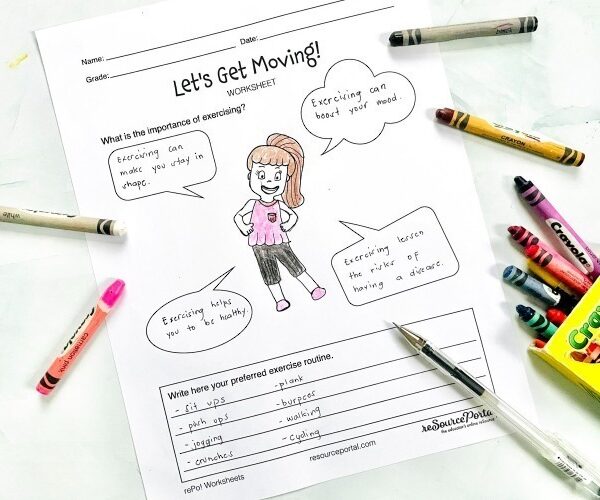 Name:
Date:
Grade:
Let's Get Moving!
WORKSHEET
What is the importance of exercising?
Exercising can
make you stay in
shape.
Exercising can
boost your mood.
Exercising helps
you to be healthy.
Exercising lessen
the risks of
having a disease.
Write here your preferred exercise routine.
- sit ups
- push ups
- jogging
- crunches
- plank
- burpees
- walking
- cycling
rePo! Worksheets
resourceportal.com
reSourcePortal
the educator's online resource
white
carnation pink
CRAYON
Crayola
Cra